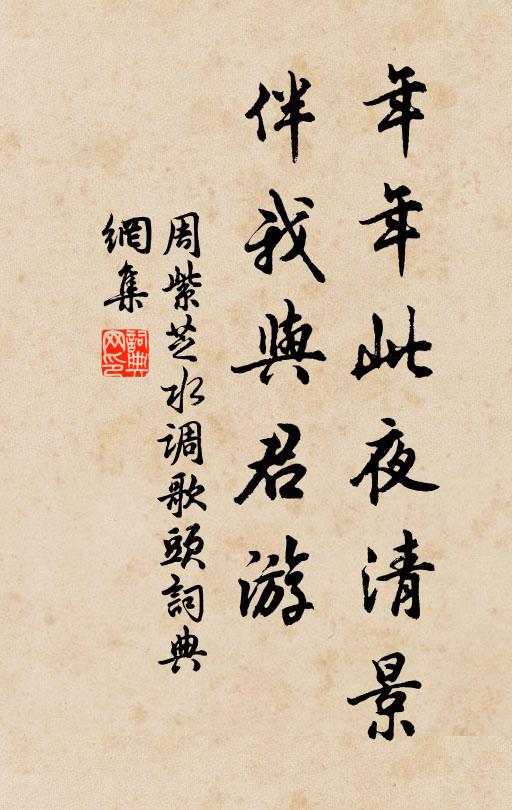 年年此夜清景
伴我與君游
周紫芝水調歌頭詞典
網集
詞典
网印